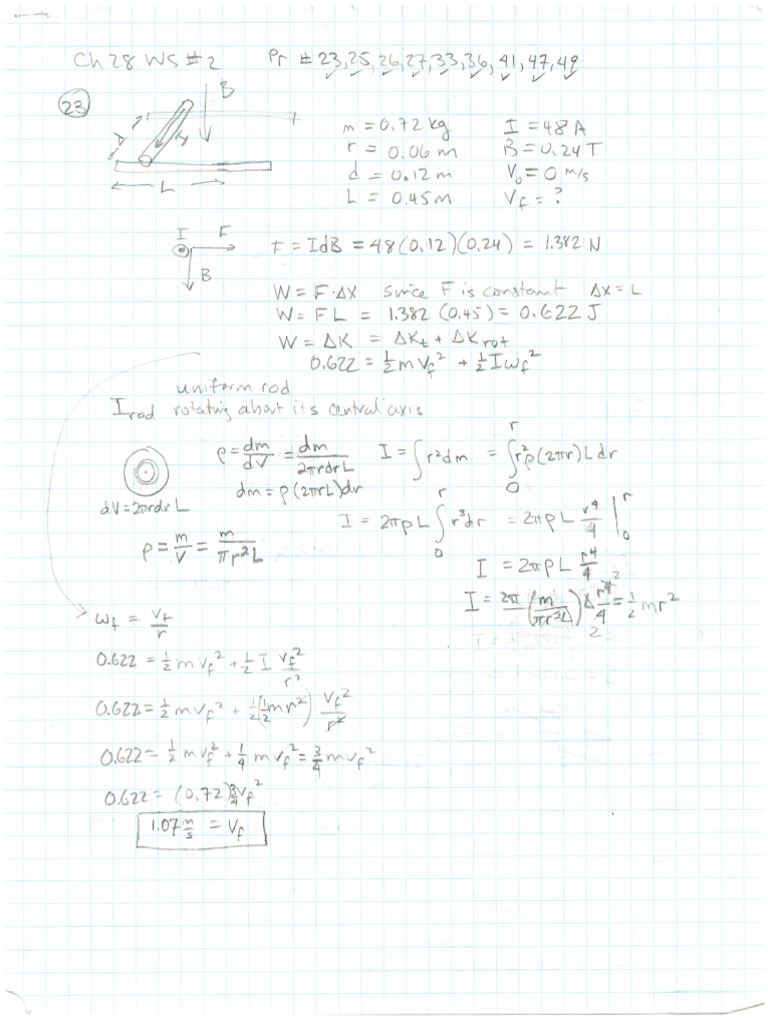 Ch 28 WS #2 Pr # 23, 25, 26, 27, 33, 36, 41, 47, 49
23
B
d
I
L
m = 0.72 kg I = 48 A
r = 0.06 m B = 0.24 T
d = 0.12 m V₀ = 0 m/s
L = 0.45 m V_f = ?
I F
B
F = IdB = 48(0.12)(0.24) = 1.382 N
W = F·Δx since F is constant Δx = L
W = FL = 1.382 (0.45) = 0.622 J
W = ΔK = ΔK_t + ΔK_rot
0.622 = ½ m V_f² + ½ I ω_f²
uniform rod
I_rod rotating about its central axis
ρ = dm/dV = dm/2πrdrL I = ∫r²dm = ∫₀^r r²ρ(2πr)L dr
dm = ρ(2πrL)dr
dV = 2πrdr L
I = 2πρL ∫₀^r r³dr = 2πρL r⁴/4 |₀^r
ρ = m/V = m/πr²L
I = 2πρL r⁴/4
I = 2π (m/πr²L) L r⁴/4 = ½ mr²
ω_f = V_f/r
0.622 = ½ m v_f² + ½ I v_f²/r²
0.622 = ½ m v_f² + ½(½mr²) v_f²/r²
0.622 = ½ m v_f² + ¼ m v_f² = ¾ m v_f²
0.622 = (0.72)¾ v_f²
1.07 m/s = V_f